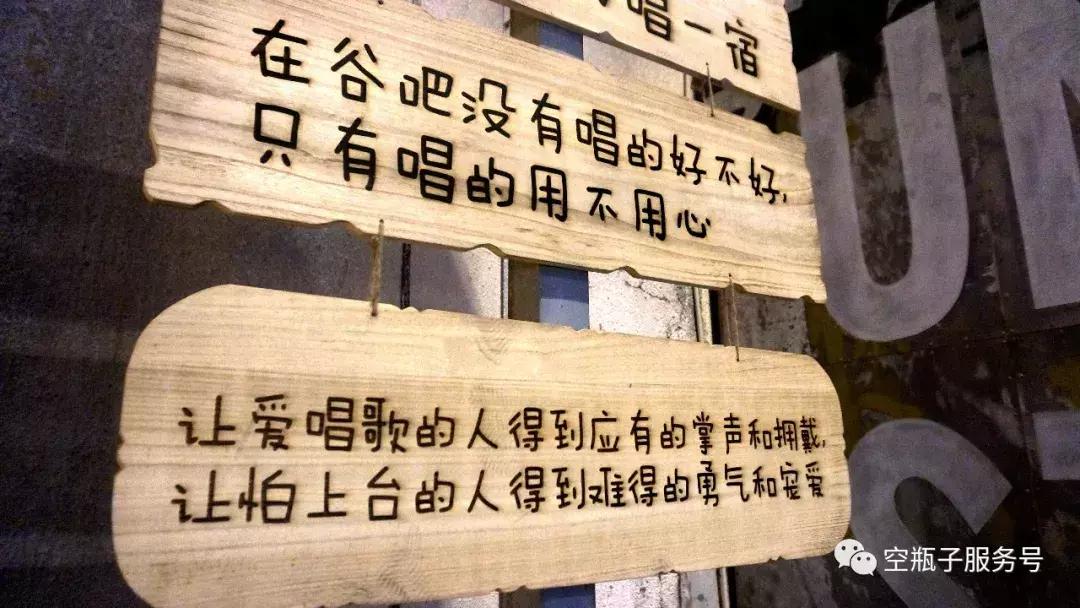 唱一宿
在谷吧没有唱的好不好,
只有唱的用不用心
让爱唱歌的人得到应有的掌声和拥戴,
让怕上台的人得到难得的勇气和宠爱
U
空瓶子服务号